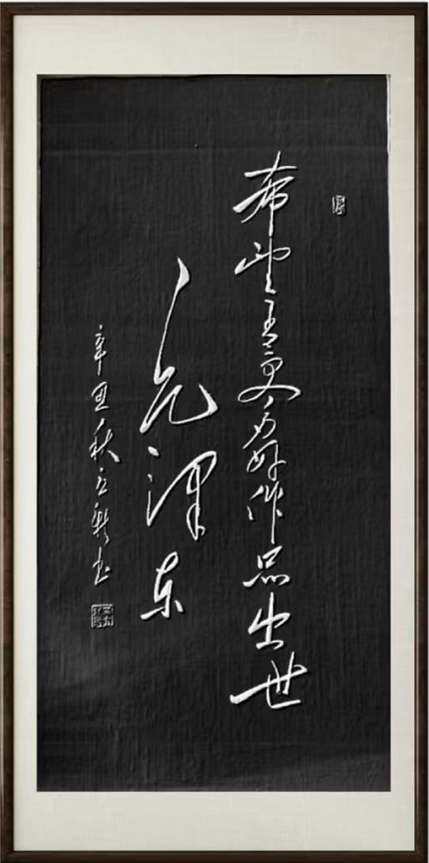 希望有更多好作品出世
毛泽东
辛丑秋立书